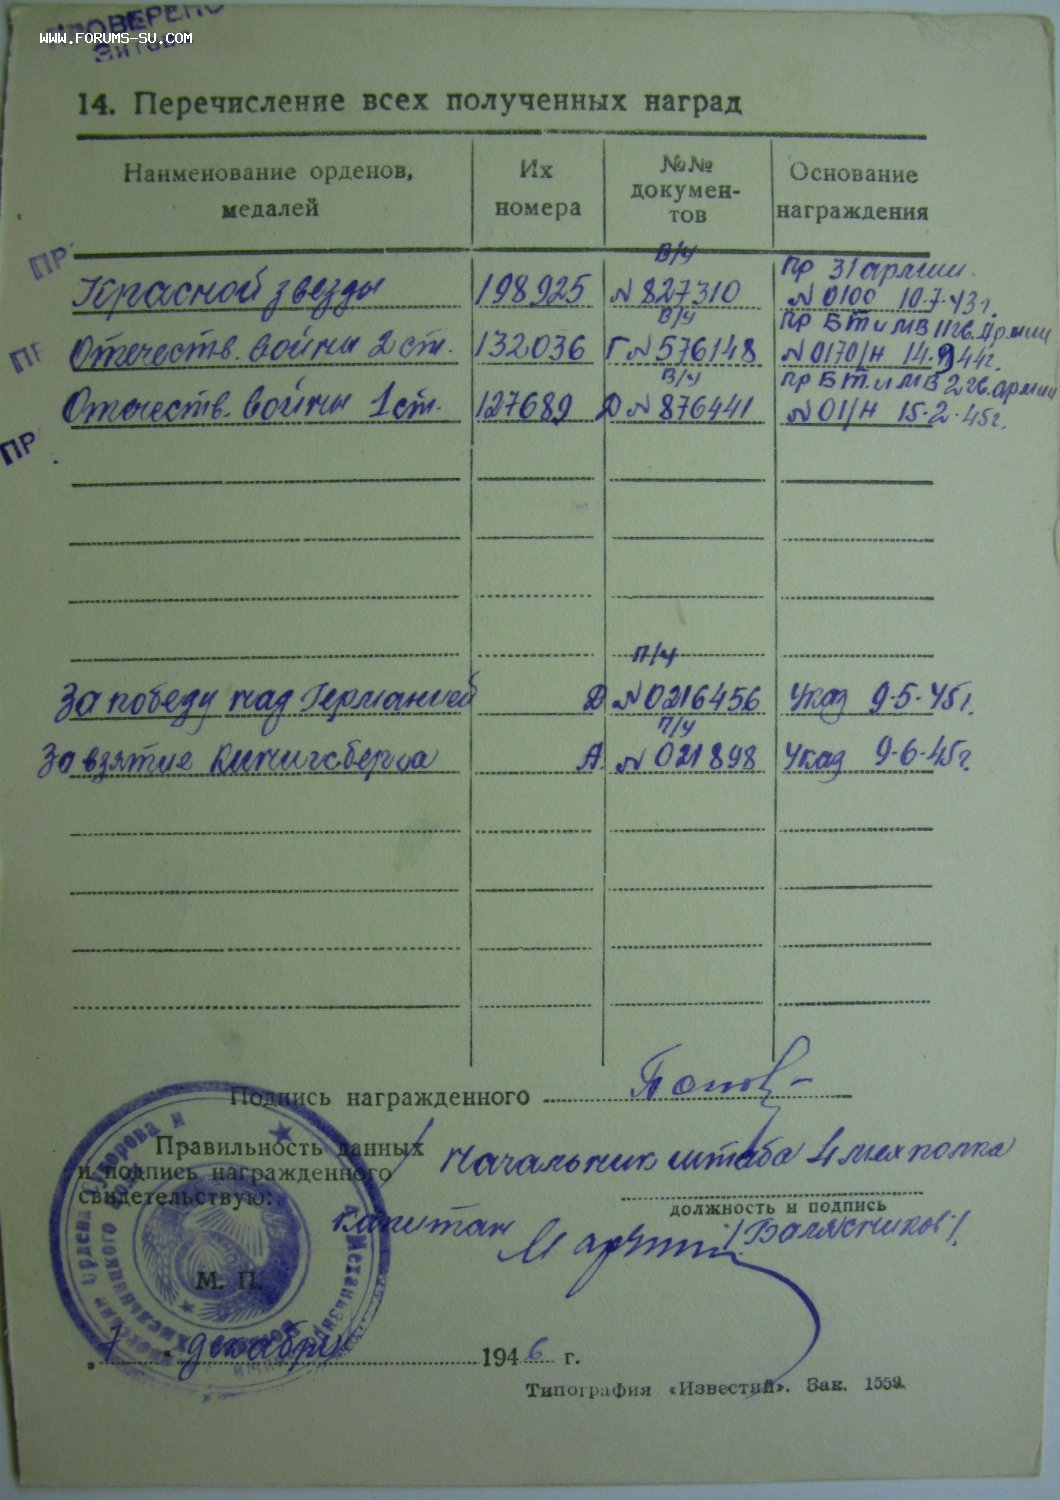 ПРОВЕРЕНО
www.forums-su.com
14. Перечисление всех полученных наград
Наименование орденов, медалей
Их номера
№№ докумен-
тов
Основание награждения
ПР
В/ч
Пр 31 армии
Красной звезды 198925 № 827310 № 0100 10.7.43г.
В/ч
Пр БТ и МВ 11 гв. Армии
ПР
Отечеств. войны 2 ст. 132036 Г № 576148 № 0170/н 14.9.44г.
В/ч
Пр БТ и МВ 2 гв. армии
Отечеств. войны 1 ст. 127689 Д № 876441 № 01/н 15.2.45г.
ПР
П/ч
За победу над Германией Д № 0216456 Указ 9.5.45г.
П/ч
За взятие Кинигсберга А № 021898 Указ 9.6.45г.
Подпись награжденного
Правильность данных
и подпись награжденного
свидетельствую:
Начальник штаба 4 мех полка
должность и подпись
капитан /Балясников/.
М. П.
7 декабря 1946 г.
Типография «Известий». Зак. 1559.